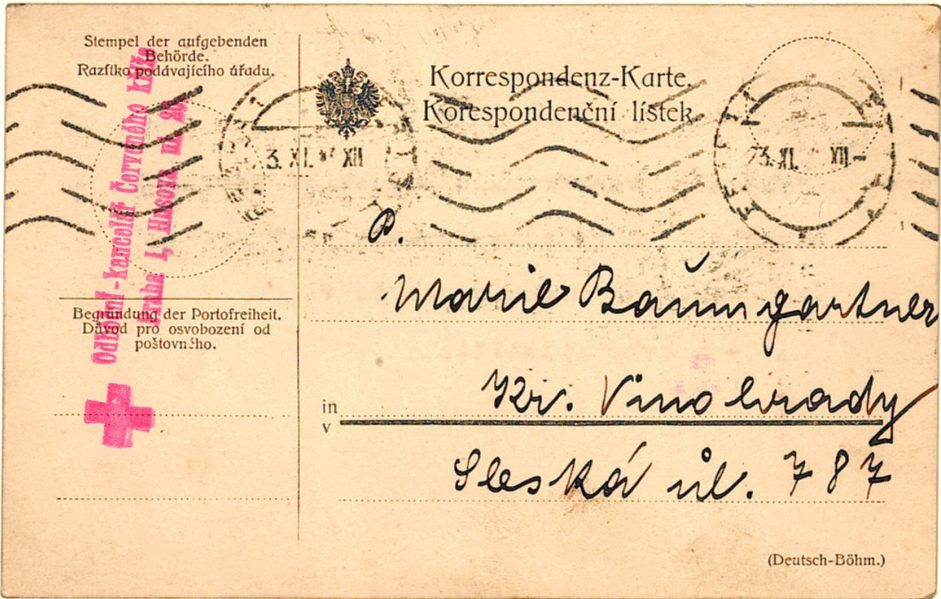 Stempel der aufgebenden
Behörde.
Razítko podávajícího úřadu.
Korrespondenz-Karte.
Korespondenční lístek.
3. XI. XII
23. XI. XII-
Odbočná-kancelář Červeného kříže
Praha I, Husova ul.
P.
Marie Baumgartner
Begründung der Portofreiheit.
Důvod pro osvobození od
poštovného.
in
v
Kr. Vinohrady
Sleská ul. 787
(Deutsch-Böhm.)